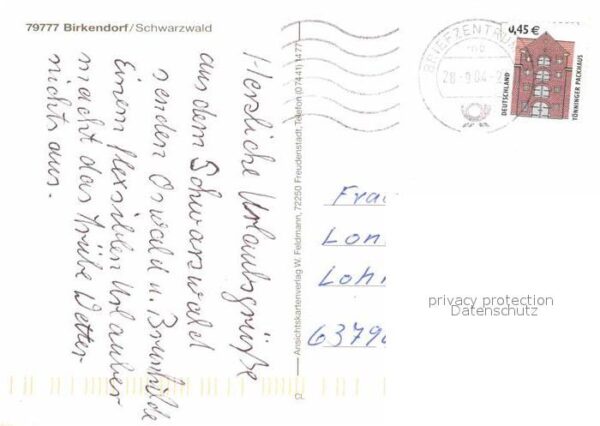 79777 Birkendorf/Schwarzwald
Herzliche Urlaubsgrüße
aus dem Schwarzwald
senden Oswald u. Brunhilde
Einem flexiblen Urlauber
macht das trübe Wetter
nichts aus.
Ansichtskartenverlag W. Feldmann, 72250 Freudenstadt, Telefon (07441) 1477
BRIEFZENTRUM
0,45 €
DEUTSCHLAND
TÖNNINGER PACKHAUS
Frau
Lon
Loh
6379
privacy protection
Datenschutz